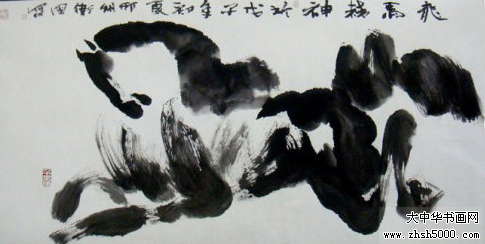 飛馬精神於戊子年初夏邢州衛国写
大中华书画网
www.zhsh5000.com